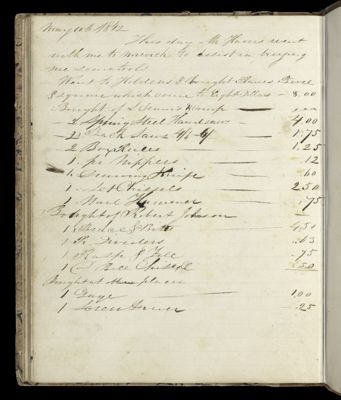 May 10th 1842
This day Mr. went
with me to to assist in buying
me some tools
Went to & bought Planes
Square which came to Eight dollars — 8.00
Bought of
2 Spring Steel Handsaws — 4.00
2 Back Saws — 1.75
2 Box Rules — 1.25
1 pr Nippers — .12
1 Drawing Knife — .60
1 Set Chissels — 2.50
1 Nail Hammer — .75
Bought of Robert Johnson
1 Brace & Bitts — 4.50
1 Pr Dividers — .63
1 Rasp & File — .75
1 Chissel — .50
Bought at places
1 Gage — 1.00
1 Screw Driver — .25